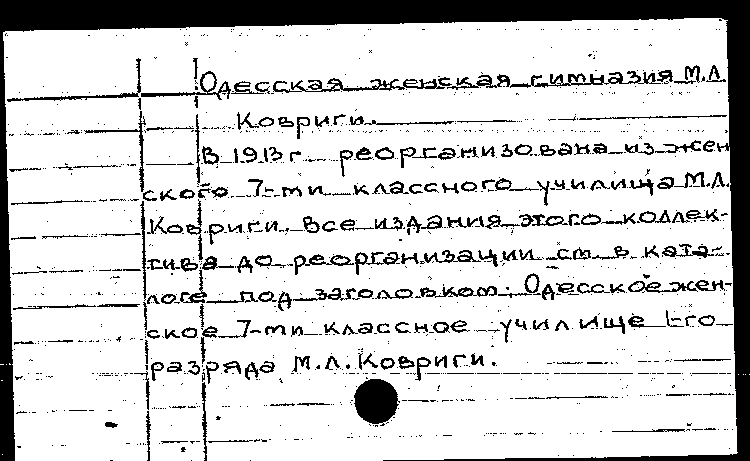 Одесская женская гимназия М.Л.
Ковриги.
В 1913 г. реорганизована из жен
ского 7-ми классного училища М.Л.
Ковриги. Все издания этого коллек-
тива до реорганизации см. в ката-
логе под заголовком: Одесское жен-
ское 7-ми классное училище 1-го
разряда М.Л. Ковриги.